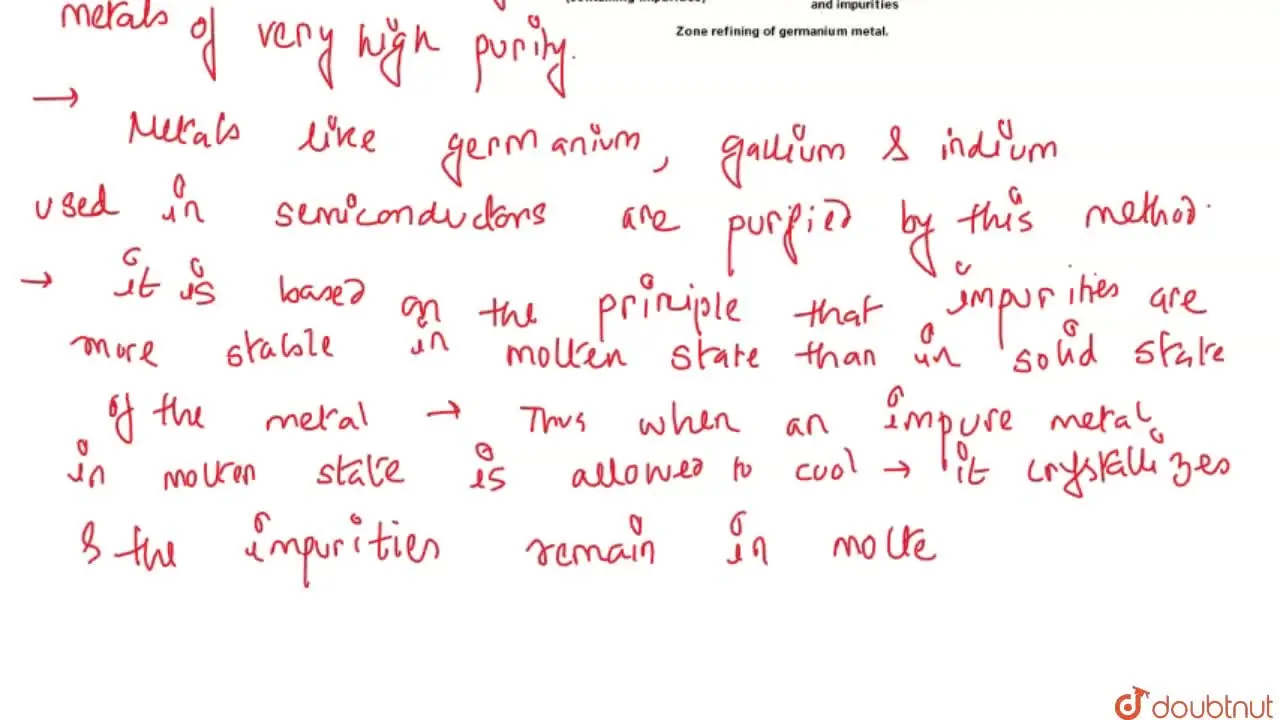 and impurities
Zone refining of germanium metal.
metals of very high purity.
→
Metals like germanium, gallium & indium
used in semiconductors are purfied by this method.
→ it is based on the priniple that impurities are
more stable in molten state than in solid state
of the metal → Thus when an impure metal
in molten state is allowed to cool → it crystallizes
& the impurities remain in molte
doubtnut